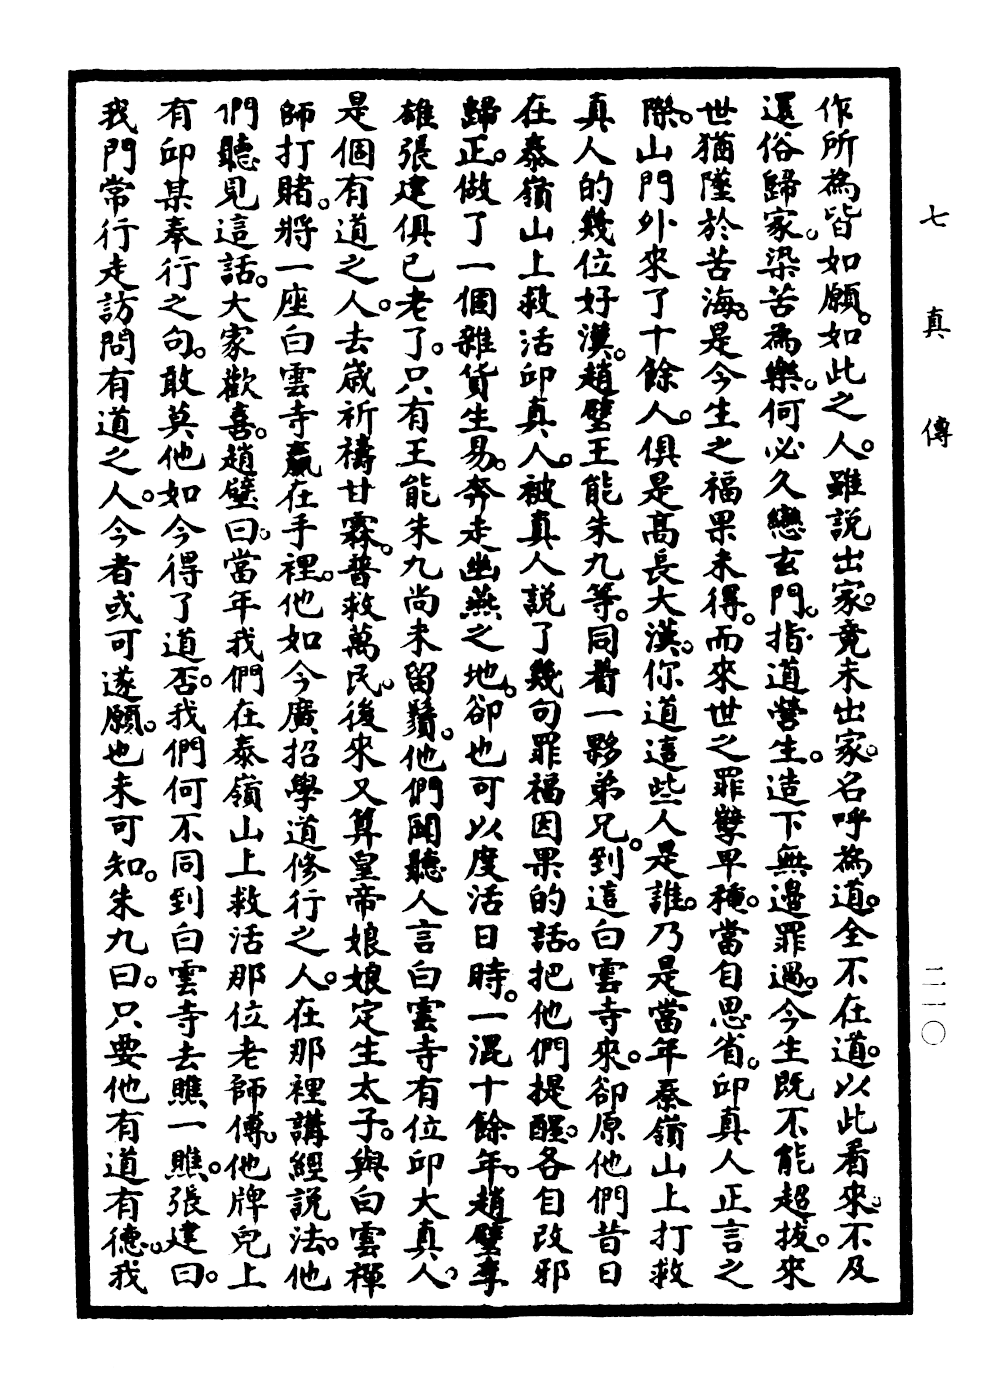 七真傳
二一〇
作所為皆如願。如此之人。雖說出家。竟未出家。名呼為道。全不在道。以此看來。不及
還俗歸家。染苦為樂。何必久戀玄門。指道營生。造下無邊罪過。今生既不能超拔。來
世猶墮於苦海。是今生之福果未得。而來世之罪孽早種。當自思省。邱真人正言之
際。山門外來了十餘人。俱是高長大漢。你道這些人是誰。乃是當年秦嶺山上打救
真人的幾位好漢。趙璧王能朱九等。同着一夥弟兄。到這白雲寺來。卻原他們昔日
在泰嶺山上救活邱真人。被真人說了幾句罪福因果的話。把他們提醒。各自改邪
歸正。做了一個雜貨生易。奔走幽燕之地。卻也可以度活日時。一混十餘年。趙璧李
雄張建俱已老了。只有王能朱九尚未留鬚。他們聞聽人言白雲寺有位邱大真人。
是個有道之人。去歲祈禱甘霖。普救萬民。後來又算皇帝娘娘定生太子。與白雲禪
師打賭。將一座白雲寺贏在手裡。他如今廣招學道修行之人。在那裡講經說法。他
們聽見這話。大家歡喜。趙璧曰。當年我們在泰嶺山上救活那位老師傅。他牌兒上
有邱某奉行之句。敢莫他如今得了道否。我們何不同到白雲寺去瞧一瞧。張建曰。
我門常行走訪問有道之人。今者或可遂願。也未可知。朱九曰。只要他有道有德。我